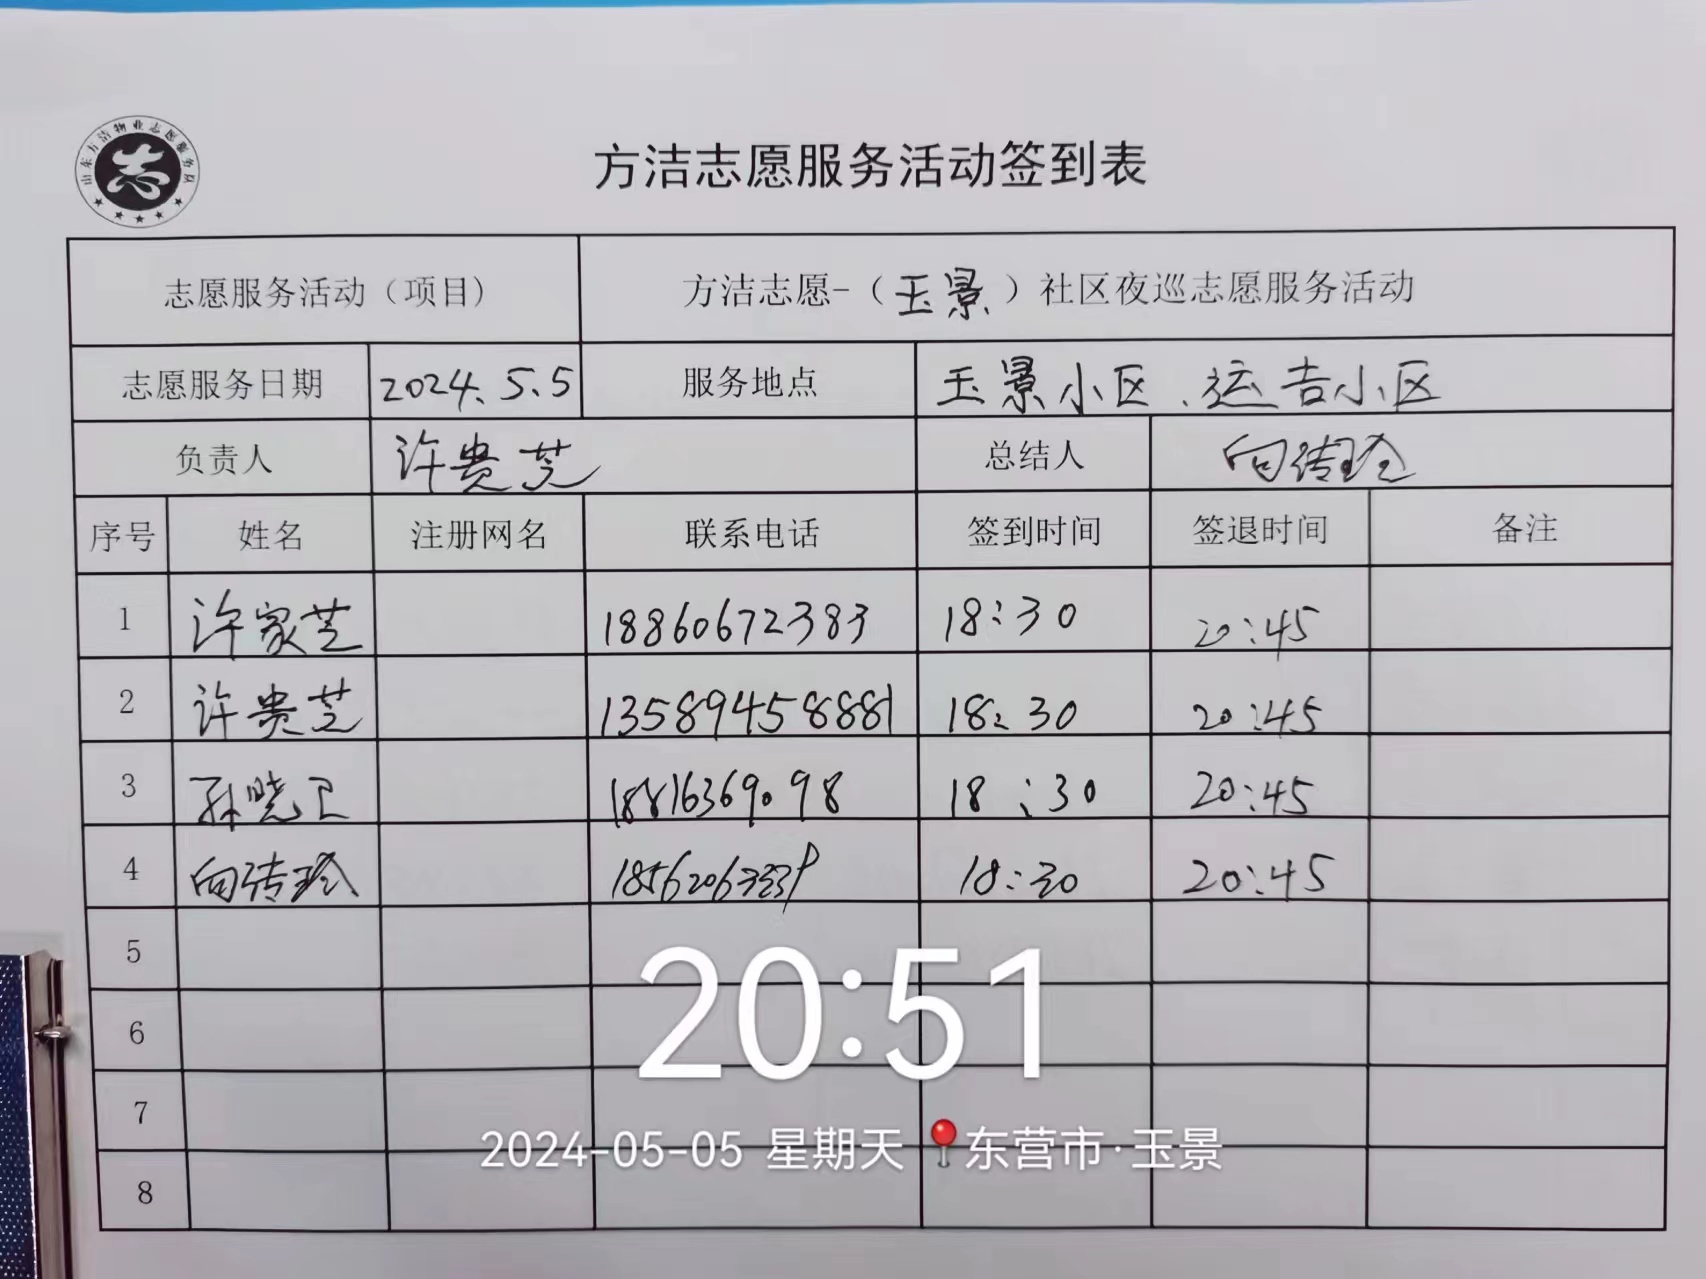 山东方洁物业志愿服务队
志
方洁志愿服务活动签到表
志愿服务活动（项目） 方洁志愿-（玉景）社区夜巡志愿服务活动
志愿服务日期 2024.5.5 服务地点 玉景小区、运吉小区
负责人 许贵芝 总结人
序号 姓名 注册网名 联系电话 签到时间 签退时间 备注
1 许家芝 18860672383 18:30 20:45
2 许贵芝 13589458881 18:30 20:45
3 孙晓卫 18:30 20:45
4 18:30 20:45
5
6
7
8
20:51
2024-05-05 星期天 东营市·玉景